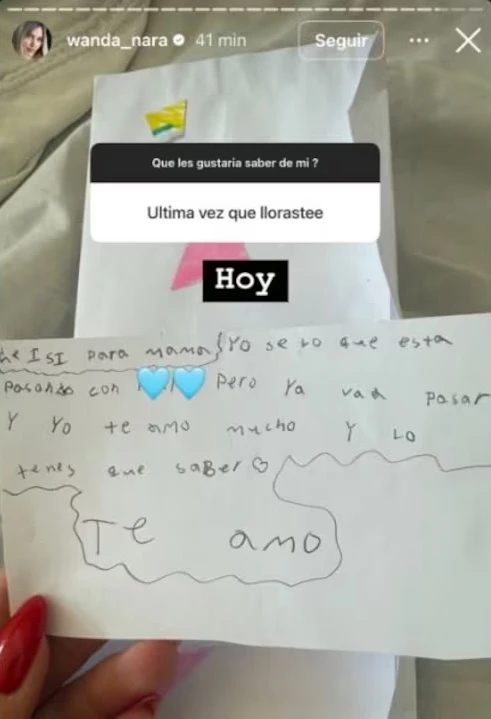 wanda_nara 41 min Seguir
Que les gustaria saber de mi ?
Ultima vez que llorastee
Hoy
De ISI para mama Yo se lo que esta
pasando con pero ya vaa pasar
Y Yo te amo mucho Y LO
tenes que saber
Te amo